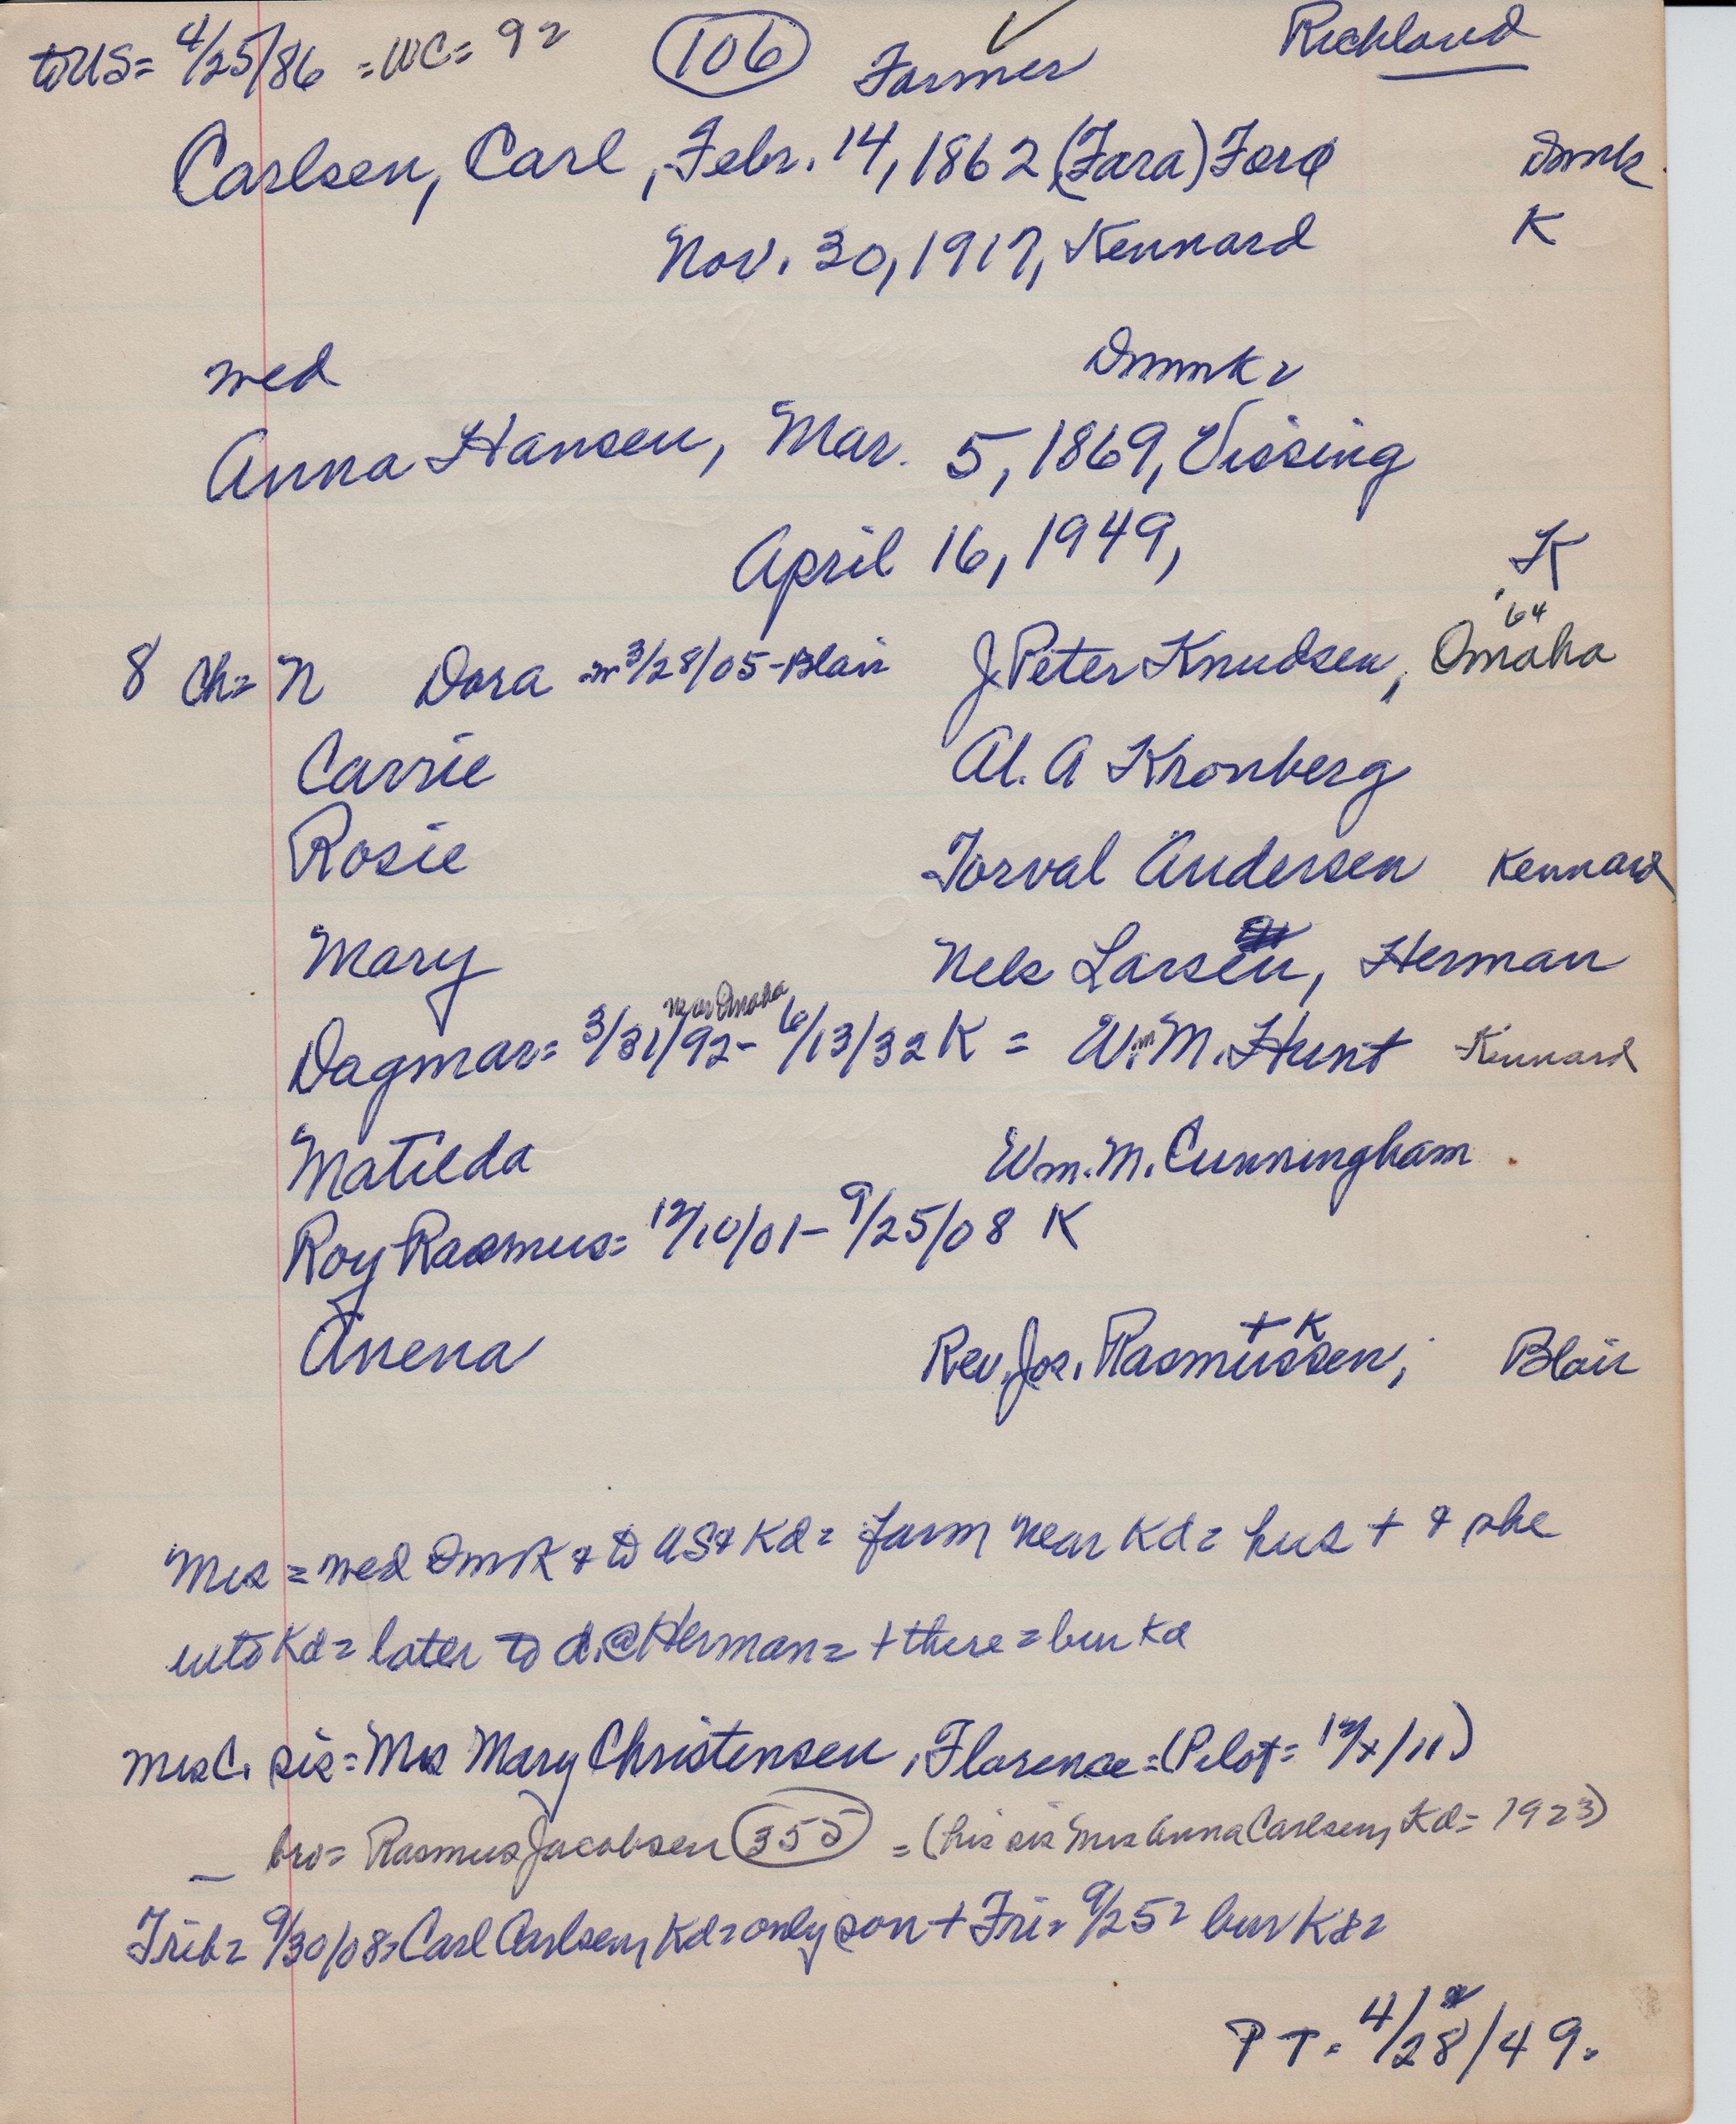 to US= 4/25/86 =WC= 92 106 Farmer Richland
Carlsen, Carl, Febr. 14, 1862 (Fara) Forø Dmk.
Nov. 30, 1917, Kennard K
med Dmmk
Anna Hansen, Mar. 5, 1869, Vissing
April 16, 1949, K
'64
8 Ch= N Dora m 3/28/05-Blair J Peter Knudsen, Omaha
Carrie Al. A Kronberg
Rosie Torval Andersen Kennard
Mary Nels Larsen, Herman
near Omaha
Dagmar= 3/31/92- 6/13/32 K = Wm M. Hunt Kennard
Matilda Wm. M. Cunningham
Roy Rasmus= 12/10/01- 9/25/08 K
+ K
Anena Rev. Jos. Rasmussen, Blair
Mrs = med DmK & to US & Kd= farm near Kd= hus + & she
into Kd= later to d. @ Herman= + there = bur Kd
Mrs C. sis= Mrs Mary Christensen, Florence=(Pilot= 12/x/11)
— bro= Rasmus Jacobsen 355 = (his sis Mrs Anna Carlsen, Kd= 1923)
Trib= 9/30/08= Carl Carlsen, Kd= only son + Fri= 9/25= bur Kd=
PT. 4/28/49.